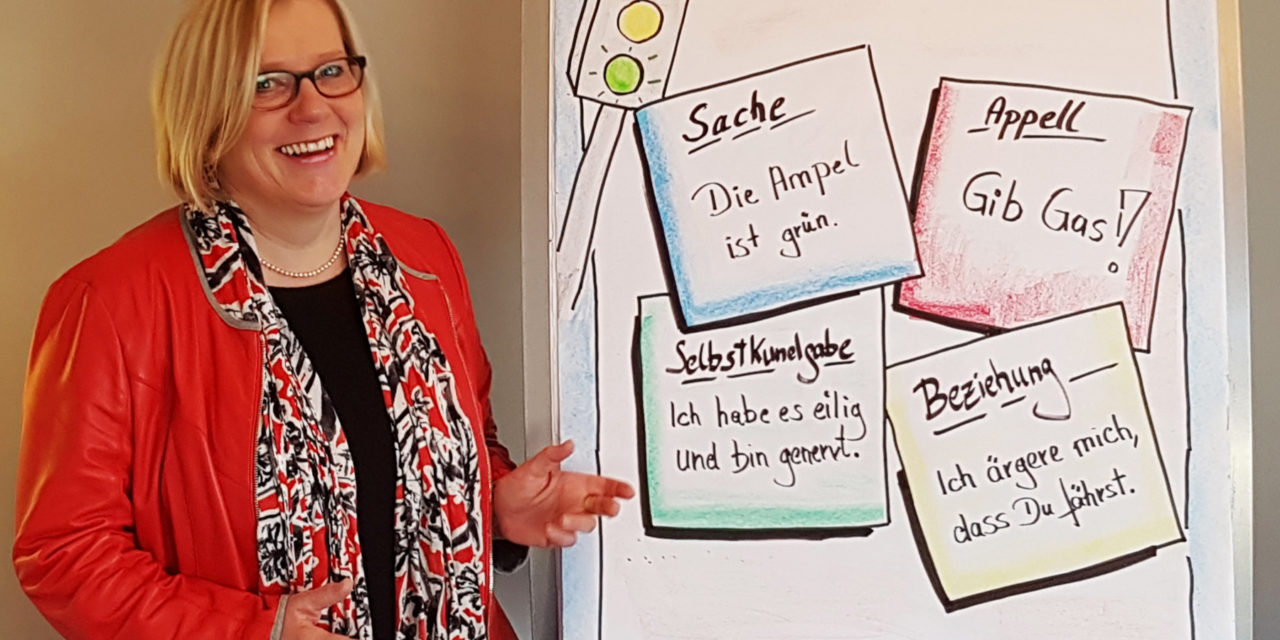 Sache
Die Ampel
ist grün.
Appell
Gib Gas!
Selbstkundgabe
Ich habe es eilig
und bin genervt.
Beziehung
Ich ärgere mich,
dass Du fährst.